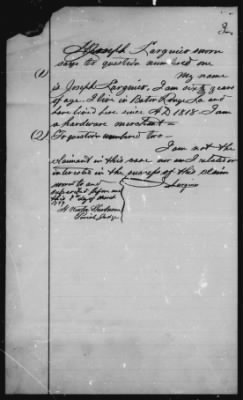 Joseph Larguier sworn
says to question numbered one
(1) My name
is Joseph Larguier, I am sixty years
of age. I live in Baton Rouge La and
have lived here since A D 1818. I am
a hardware merchant =
(2) To question numbered two =
I am not the
claimant in this case nor am I related or
interested in the success of this claim
sworn to and J Larguier
subscribed before me
this day of
Parish Judge